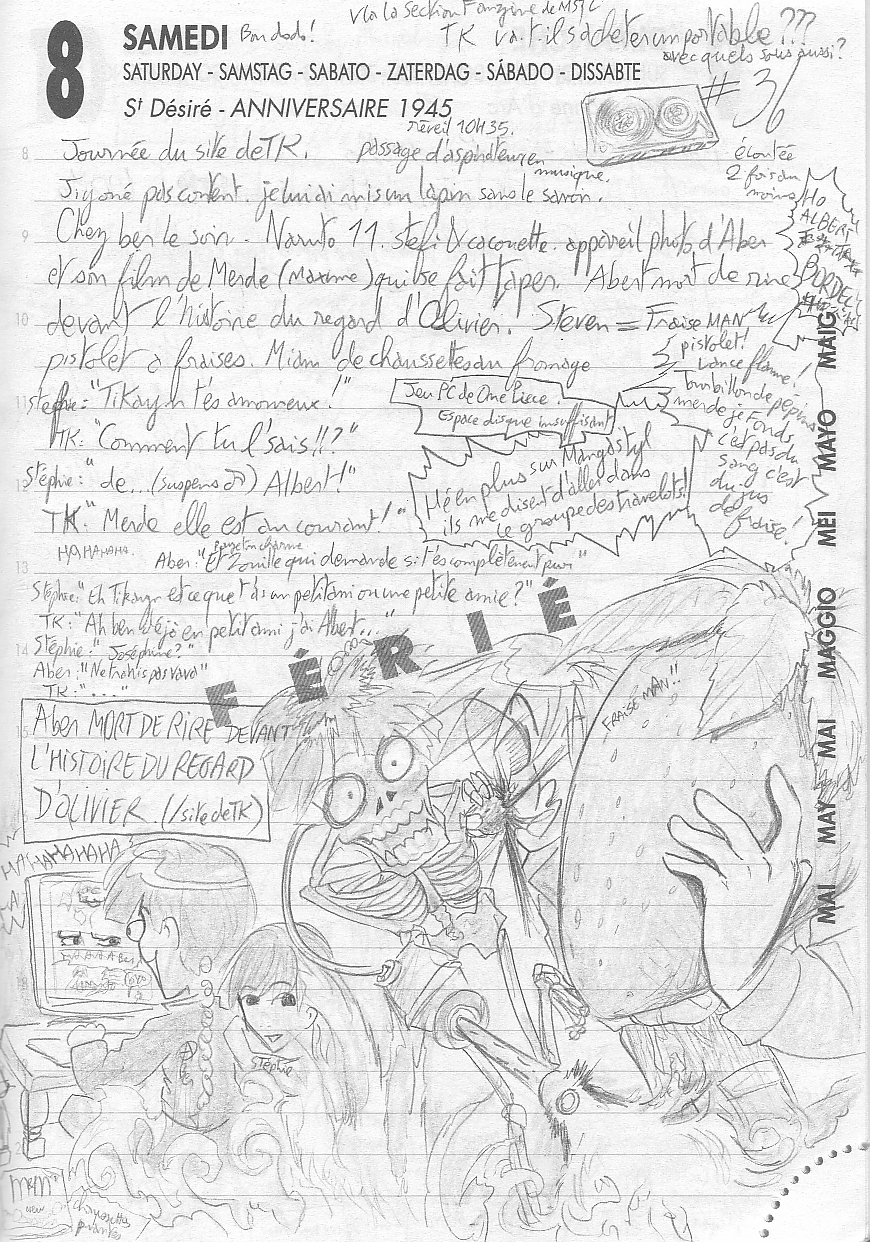 8
SAMEDI Bon dodo!
SATURDAY - SAMSTAG - SABATO - ZATERDAG - SÁBADO - DISSABTE
St Désiré - ANNIVERSAIRE 1945
V'la la section Fanzine de
TK va t'il s'acheter un portable ???
avec quels sous aussi?
#36
écoutée
2 fois au
moins
réveil 10H35.
Journée du site de TK. passage d'aspirateur en
musique.
pas content. je lui ai mis un lapin sans le savoir.
Chez ben le soir. Naruto 11. Stefi & cacouette. appareil photo d'Aber
et son film de Merde (Maxime) qui se fait taper. Abert mort de rire
devant l'histoire du regard d'Olivier! Steven = Fraise MAN
pistolet a fraises. Miam de chaussettes au fromage
HO
ALBERT
BORDEL
pistolet!
Lance flamme!
Tourbillon de pépins
merde je fonds
c'est pas du
sang c'est
du jus
de fraise!
Jeu PC de One Piece.
Espace disque insuffisant
Hé en plus sur Mangastyl
ils me disent d'aller dans
le groupe des travelots!!
Stephie: "Tikayn t'és amoureux!"
TK: "Comment tu l'sais!!?"
Stéphie: "de... (suspens) Albert!"
TK: "Merde elle est au courant!"
HAHAHAHA.
Aber: "Et Zouille qui demande si t'és complètement pur"
Stéphie: "Eh Tikayn est ce que t'as un petit ami ou une petite amie?"
TK: "Ah ben déjà en petit ami j'ai Albert..."
Stéphie: "Joséphine?"
Aber: "Ne trahis pas"
TK: "..."
FÉRIÉ
Aber MORT DE RIRE DEVANT
L'HISTOIRE DU REGARD
D'OLIVIER. (/site de TK)
HAHAHAHAHA
FRAISE MAN!!
Stéphie
MAI MAY MAI MAGGIO MEI MAYO MAIG
Chaussettes
puantes